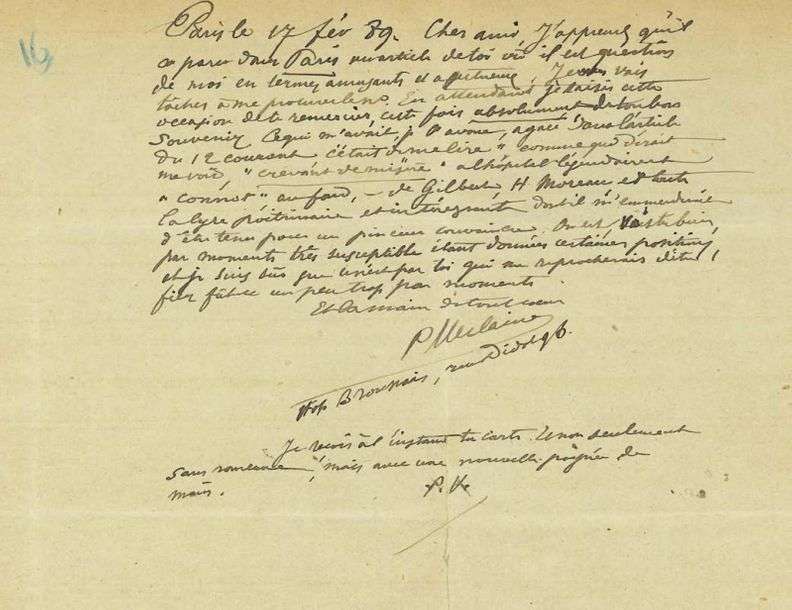 16
Paris le 17 fév 89. Cher ami, J'apprends qu'il
a paru dans Paris un article de toi où il est question
de moi en termes amusants et . Je vais
tâcher à me procurer le no. En attendant je saisis cette
occasion de te remercier, cette fois absolument de ton bon
souvenir. Ce qui m'avait, je l'avoue, agacé dans l'article
du 12 courant c'était de me lire "comme qui dirait
me voir, "crevant de misère" à l'hôpital légendairement
"connot" au fond, — de Gilbert, H. Moreau et toute
la lyre poitrinaire et intéressante dont il m'emmerderait
d'être tenu pour un pinceur convaincu. On est, vois-tu bien,
par moments très susceptible étant données certaines positions,
et je suis sûr que ce n'est pas toi qui me reprocherais d'être
fier fût-ce un peu trop par moments.
Et la main de tout cœur
P Verlaine
Hop Broussais, rue Didot 96.
Je reçois à l'instant ta carte. Et non seulement
sans rancune, mais avec une nouvelle poignée de
main.
P. V.